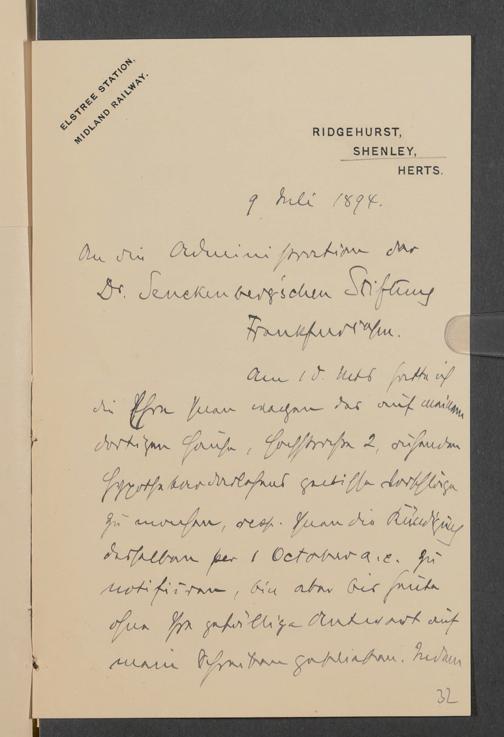 ELSTREE STATION.
MIDLAND RAILWAY.
RIDGEHURST,
SHENLEY,
HERTS.
9 Juli 1894.
An die Administration der
Dr. Senckenberg'schen Stiftung
Frankfurt a/m.
Am 10. hatte ich
die Ehre Ihnen wegen des auf meinem
dortigen Hause, Hochstrasse 2, ruhenden
Hypothekardarlehens gewisse Vorschläge
zu machen, resp. Ihnen die Kündigung
desselben per 1 October a.c. zu
notifiziren, bin aber bis heute
ohne Ihre gefällige Antwort auf
mein Schreiben geblieben. Indem
32